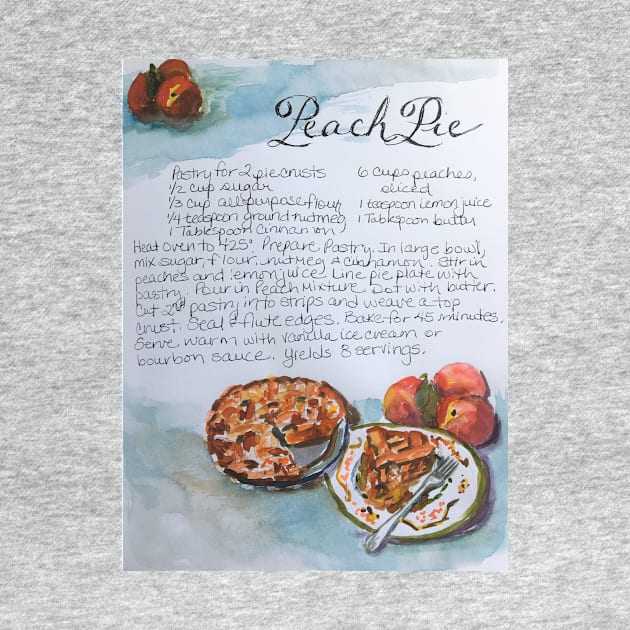 Peach Pie
Pastry for 2 pie crusts
1/2 cup sugar
1/3 cup all purpose flour
1/4 teaspoon ground nutmeg
1 Tablespoon Cinnamon
6 Cups peaches,
sliced
1 teaspoon lemon juice
1 Tablespoon butter
Heat Oven to 425°. Prepare Pastry. In large bowl,
mix sugar, flour, nutmeg & cinnamon. Stir in
peaches and lemon juice. Line pie plate with
pastry. Pour in Peach Mixture. Dot with butter.
Cut 2nd pastry into strips and weave a top
crust. Seal & flute edges. Bake for 45 minutes.
Serve warm with vanilla ice cream or
bourbon sauce. Yields 8 servings.